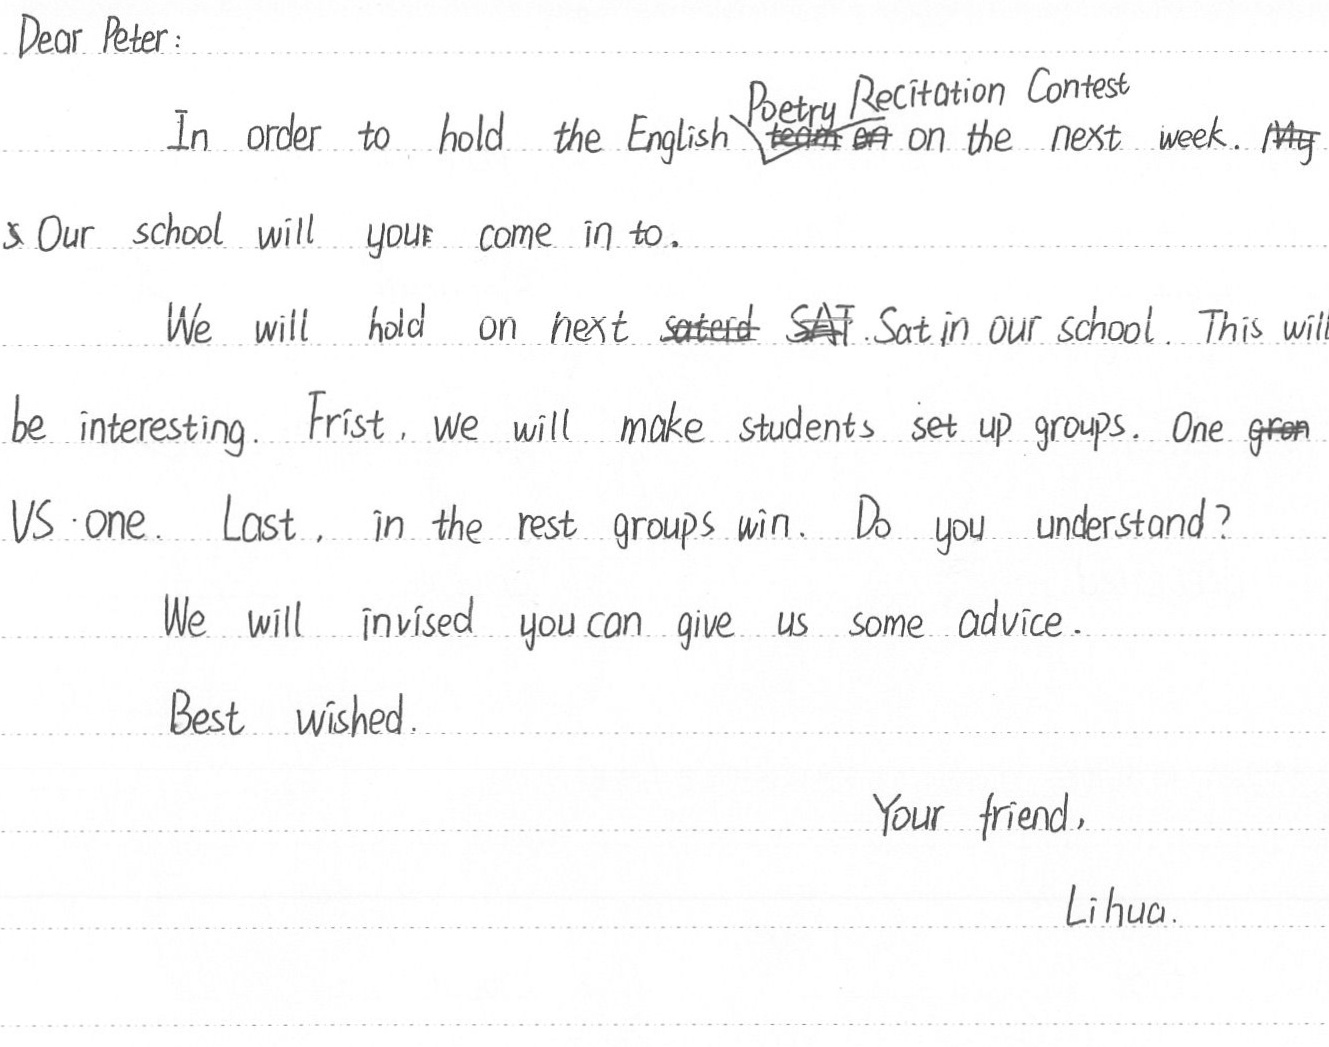 Dear Peter:
In order to hold the English Poetry Recitation Contest on the next week.
Our school will your come in to.
We will hold on next Sat in our school. This will
be interesting. Frist, we will make students set up groups. One
VS one. Last, in the rest groups win. Do you understand?
We will invised you can give us some advice.
Best wished.
Your friend,
Lihua.